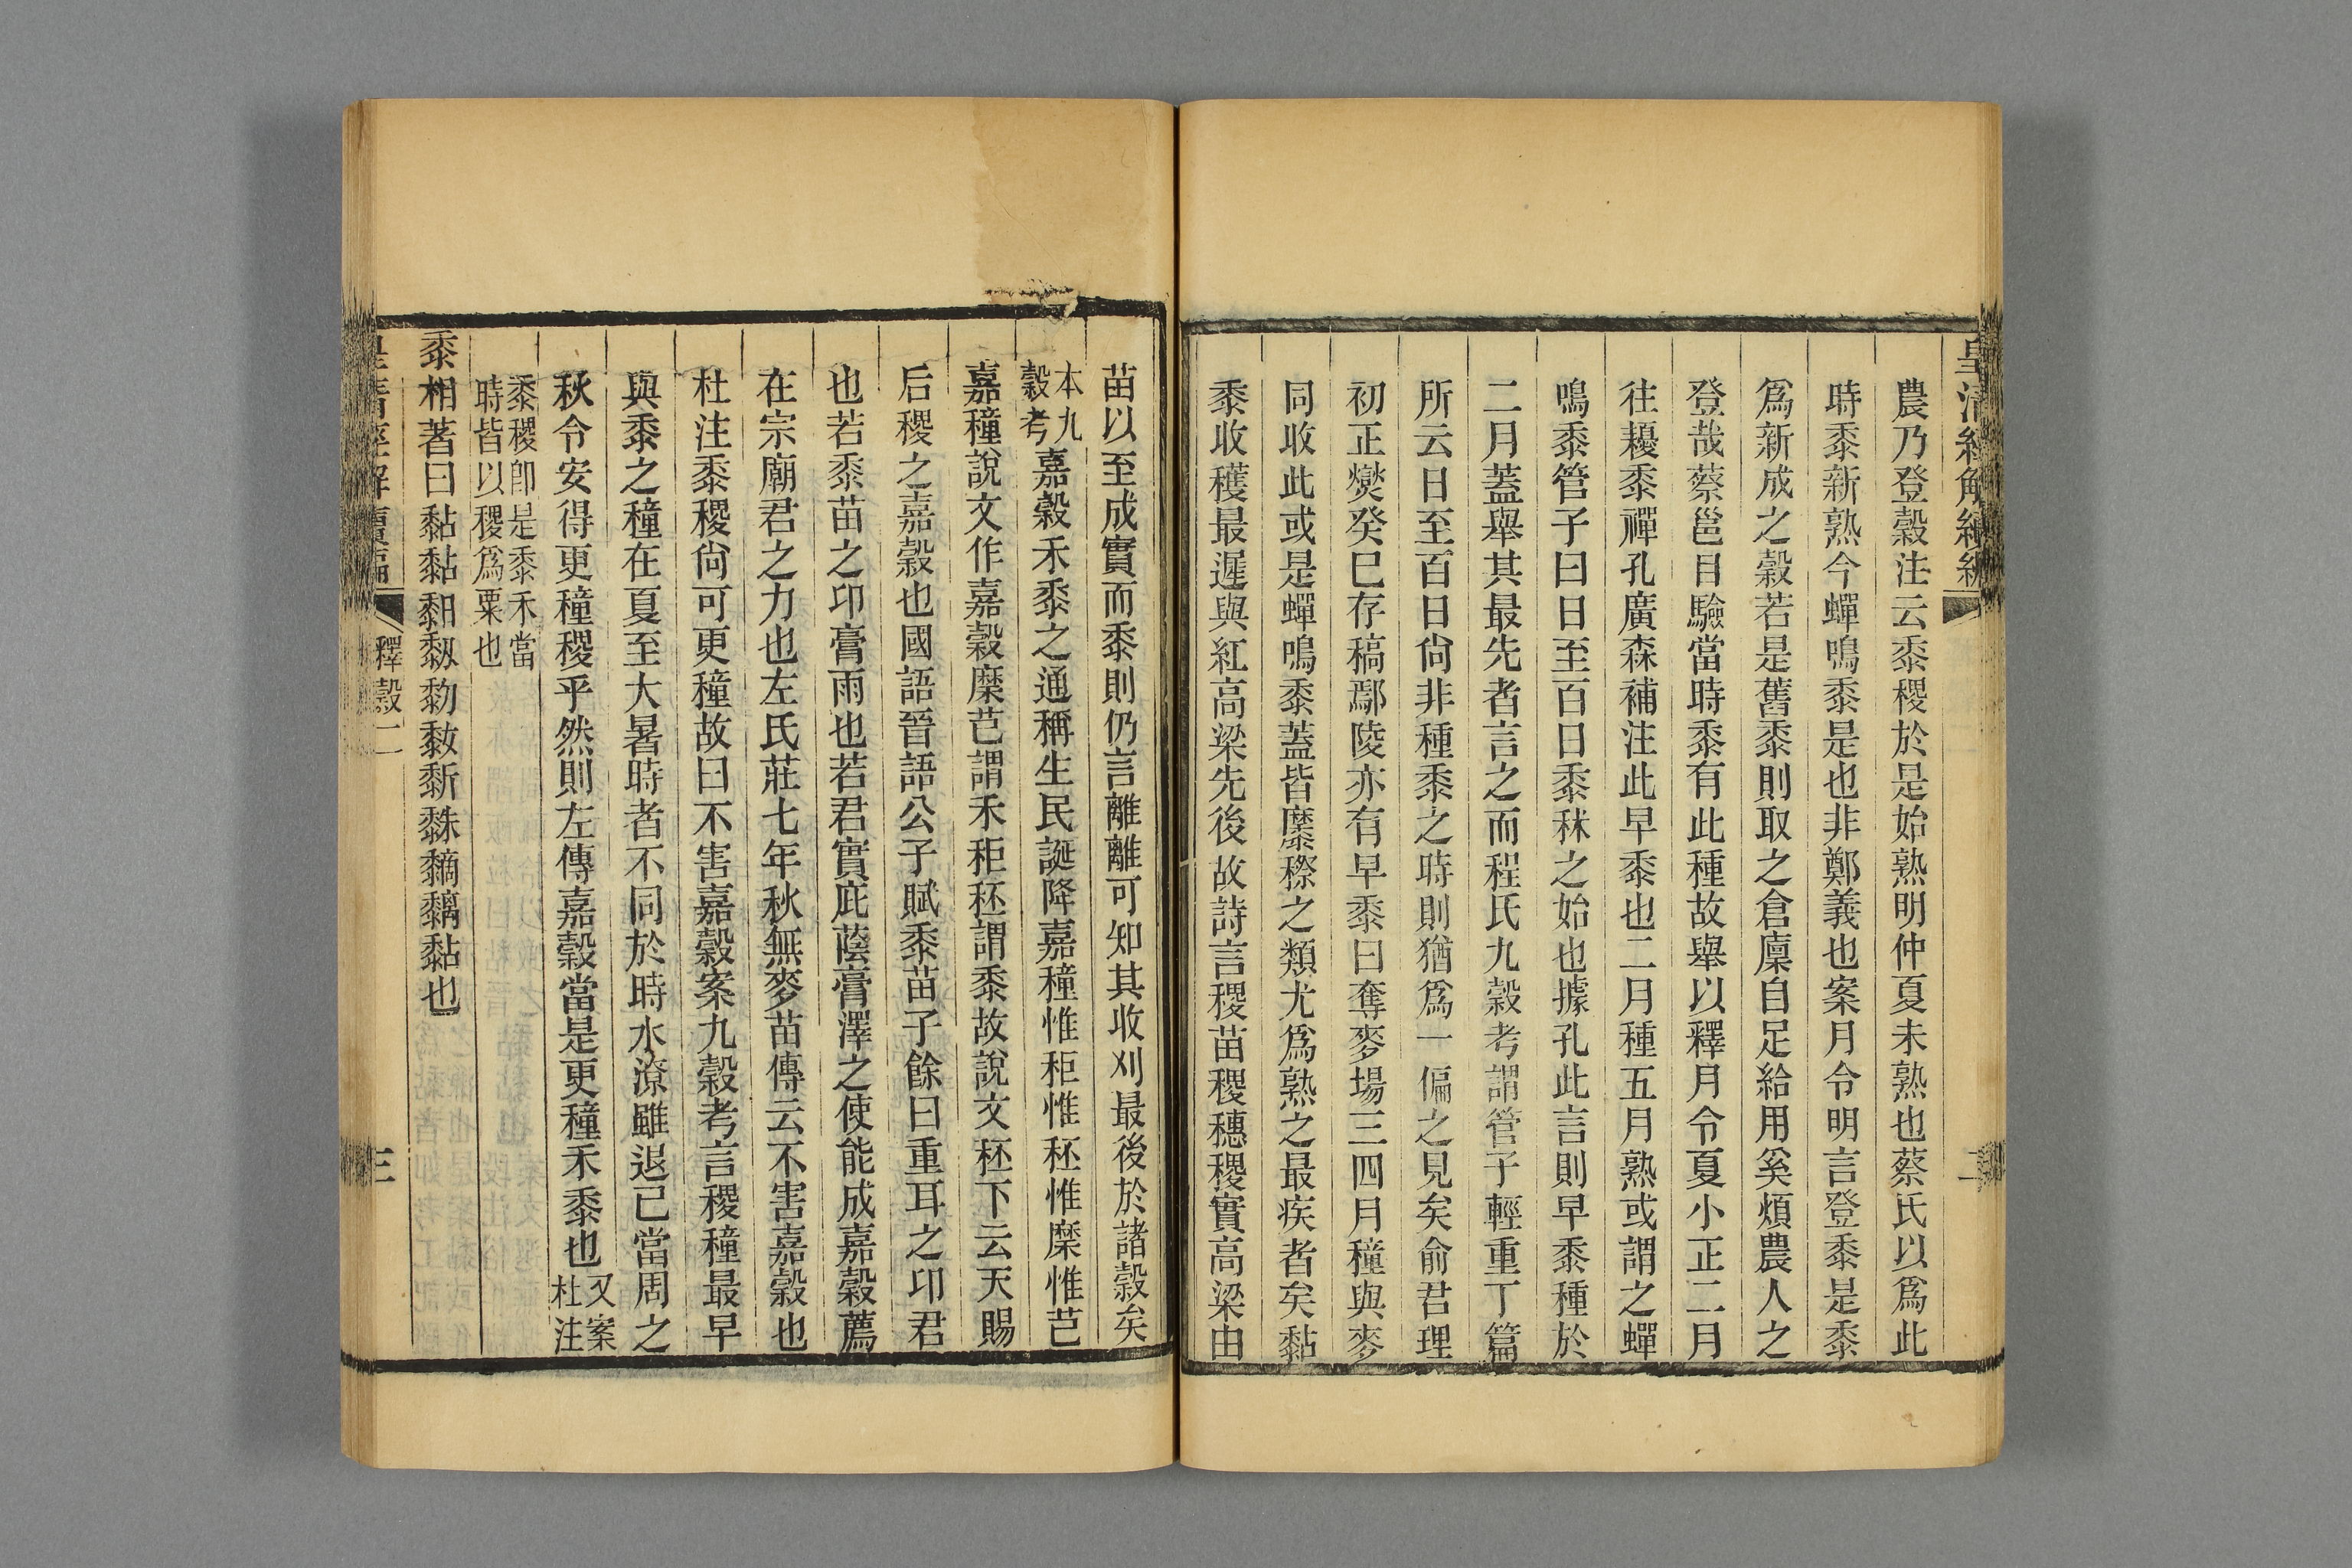 皇清經解續編
二
農乃登穀注云黍稷於是始熟明仲夏未熟也蔡氏以爲此
時黍新熟今蟬鳴黍是也非鄭義也案月令明言登黍是黍
爲新成之穀若是舊黍則取之倉廩自足給用奚煩農人之
登哉蔡邕目驗當時黍有此種故舉以釋月令夏小正二月
往耰黍禪孔廣森補注此早黍也二月種五月熟或謂之蟬
鳴黍管子曰日至百日黍秫之始也據孔此言則早黍種於
二月蓋舉其最先者言之而程氏九穀考謂管子輕重丁篇
所云日至百日尙非種黍之時則猶爲一偏之見矣俞君理
初正燮癸巳存稿鄢陵亦有早黍曰奪麥場三四月穜與麥
同收此或是蟬鳴黍蓋皆穈穄之類尤爲熟之最疾者矣黏
黍收穫最遲與紅高梁先後故詩言稷苗稷穗稷實高梁由
苗以至成實而黍則仍言離離可知其收刈最後於諸穀矣
本九
穀考
嘉穀禾黍之通稱生民誕降嘉穜惟秬惟秠惟穈惟芑
嘉穜說文作嘉穀穈芑謂禾秬秠謂黍故說文秠下云天賜
后稷之嘉穀也國語晉語公子賦黍苗子餘曰重耳之卬君
也若黍苗之卬膏雨也若君實庇蔭膏澤之使能成嘉穀薦
在宗廟君之力也左氏莊七年秋無麥苗傳云不害嘉穀也
杜注黍稷尙可更穜故曰不害嘉穀案九穀考言稷穜最早
與黍之穜在夏至大暑時者不同於時水潦雖退已當周之
秋令安得更穜稷乎然則左傳嘉穀當是更穜禾黍也
又案
杜注
黍稷卽是黍禾當
時皆以稷爲粟也
黍相著曰黏䵑䵒䵔黐黏也
皇清經解續編
釋穀二
三